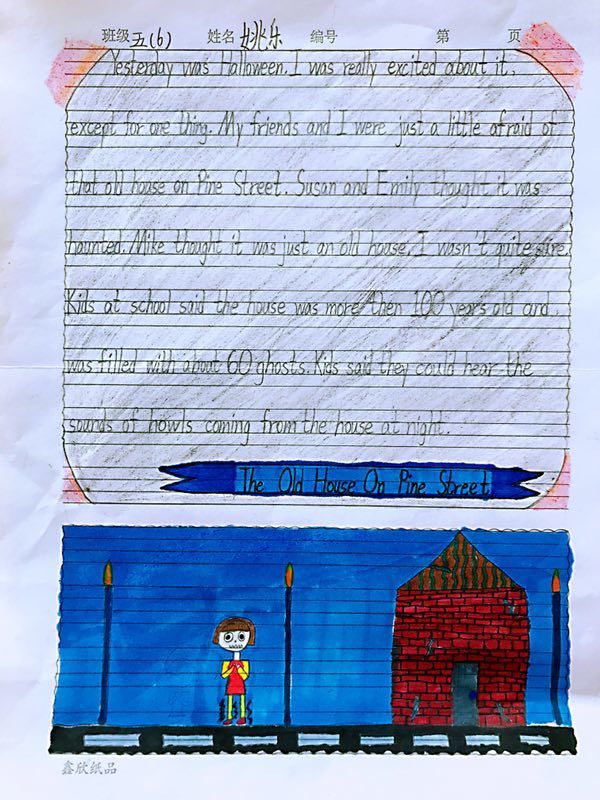 班级 五(6) 姓名 姚乐 编号 第 页
Yesterday was Halloween. I was really excited about it,
except for one thing. My friends and I were just a little afraid of
that old house on Pine Street. Susan and Emily thought it was
haunted. Mike thought it was just an old house. I wasn't quite sure.
Kids at school said the house was more then 100 years old and
was filled with about 60 ghosts. Kids said they could hear the
sounds of howls coming from the house at night.
The Old House On Pine Street
鑫欣纸品